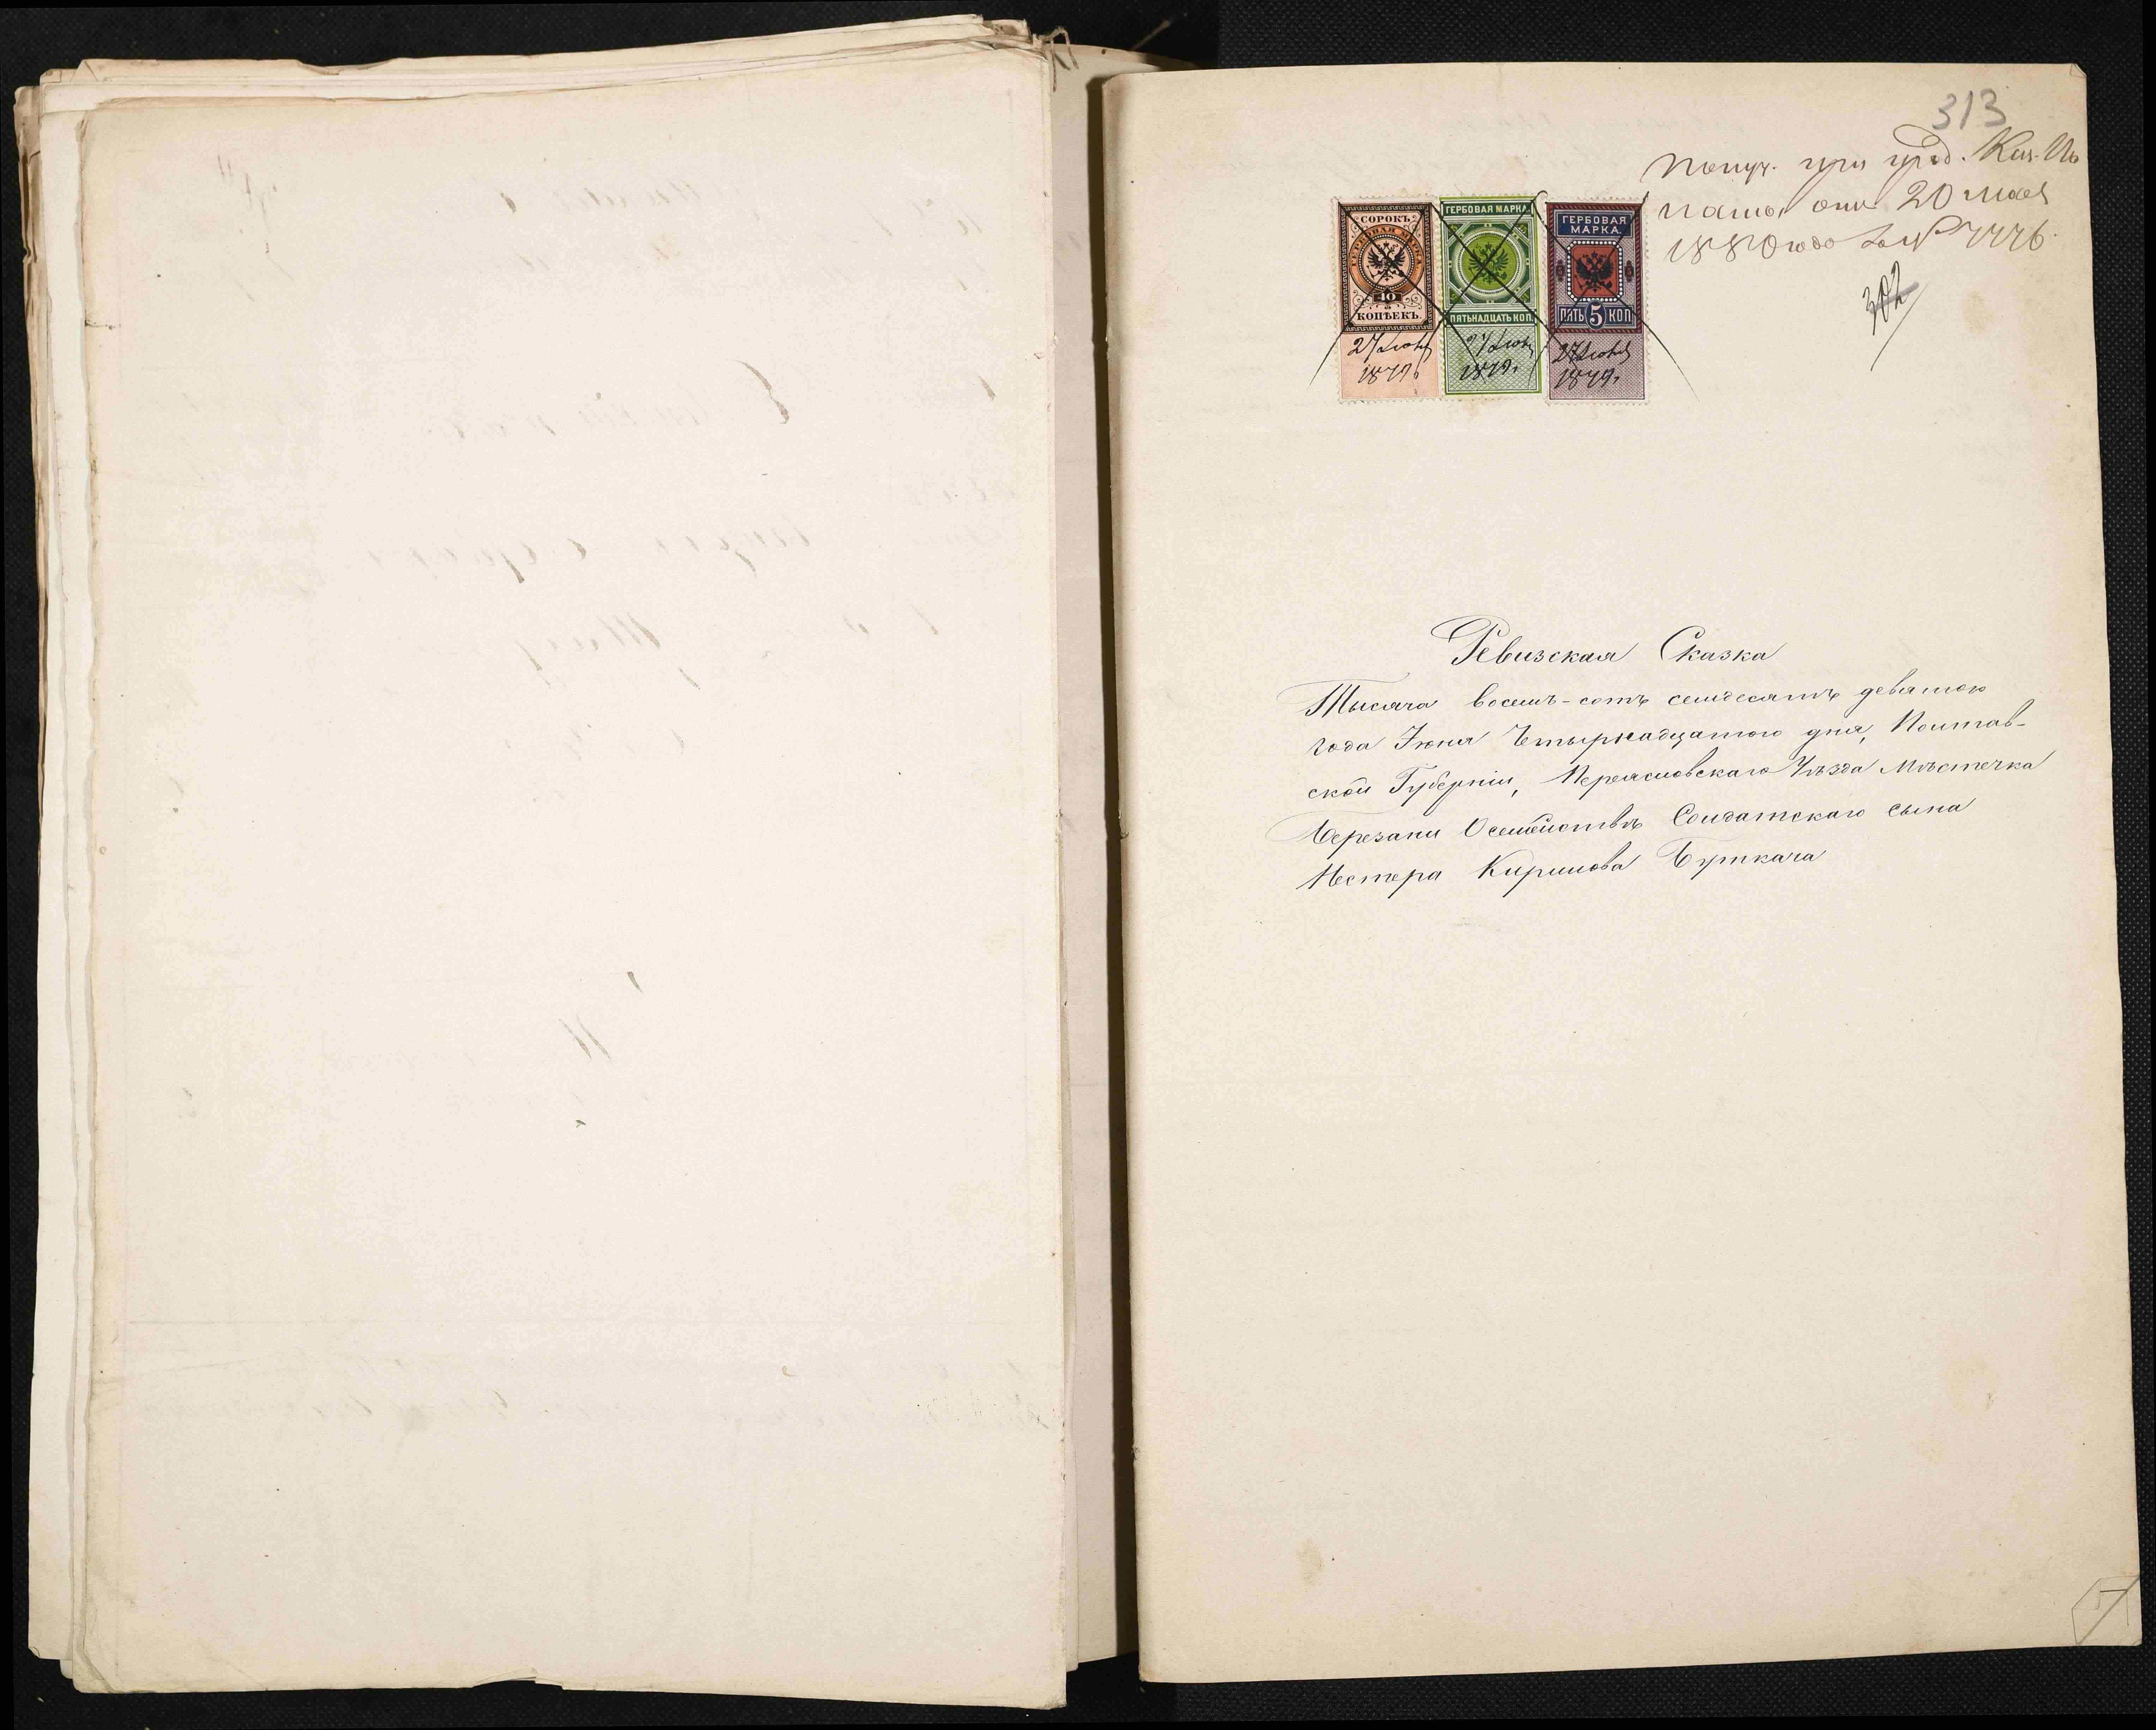 313
получ. при пред. Каз. Па
латы отъ 20 мая
1880 года за № 7776.
302
СОРОКЪ
ГЕРБОВАЯ МАРКА
40
КОПѢЕКЪ.
27 Июня
1879.
ГЕРБОВАЯ МАРКА.
ПЯТЬНАДЦАТЬ КОП.
27 Июня
1879.
ГЕРБОВАЯ
МАРКА.
ПЯТЬ 5 КОП
27 Июня
1879.
Ревизская Сказка
Тысяча восемь-сотъ семдесятъ девятого
года Іюня Четырнадцатого дня, Полтав-
ской Губерніи, Переясловскаго Уѣзда Мѣстечка
Березани О семействѣ Солдатскаго сына
Нестера Кирилова Буткача